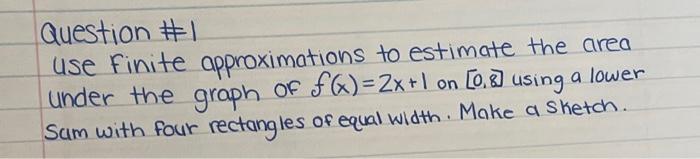 Question #1
use finite approximations to estimate the area
under the graph of f(x)=2x+1 on [0,8] using a lower
Sum with four rectangles of equal width. Make a sketch.